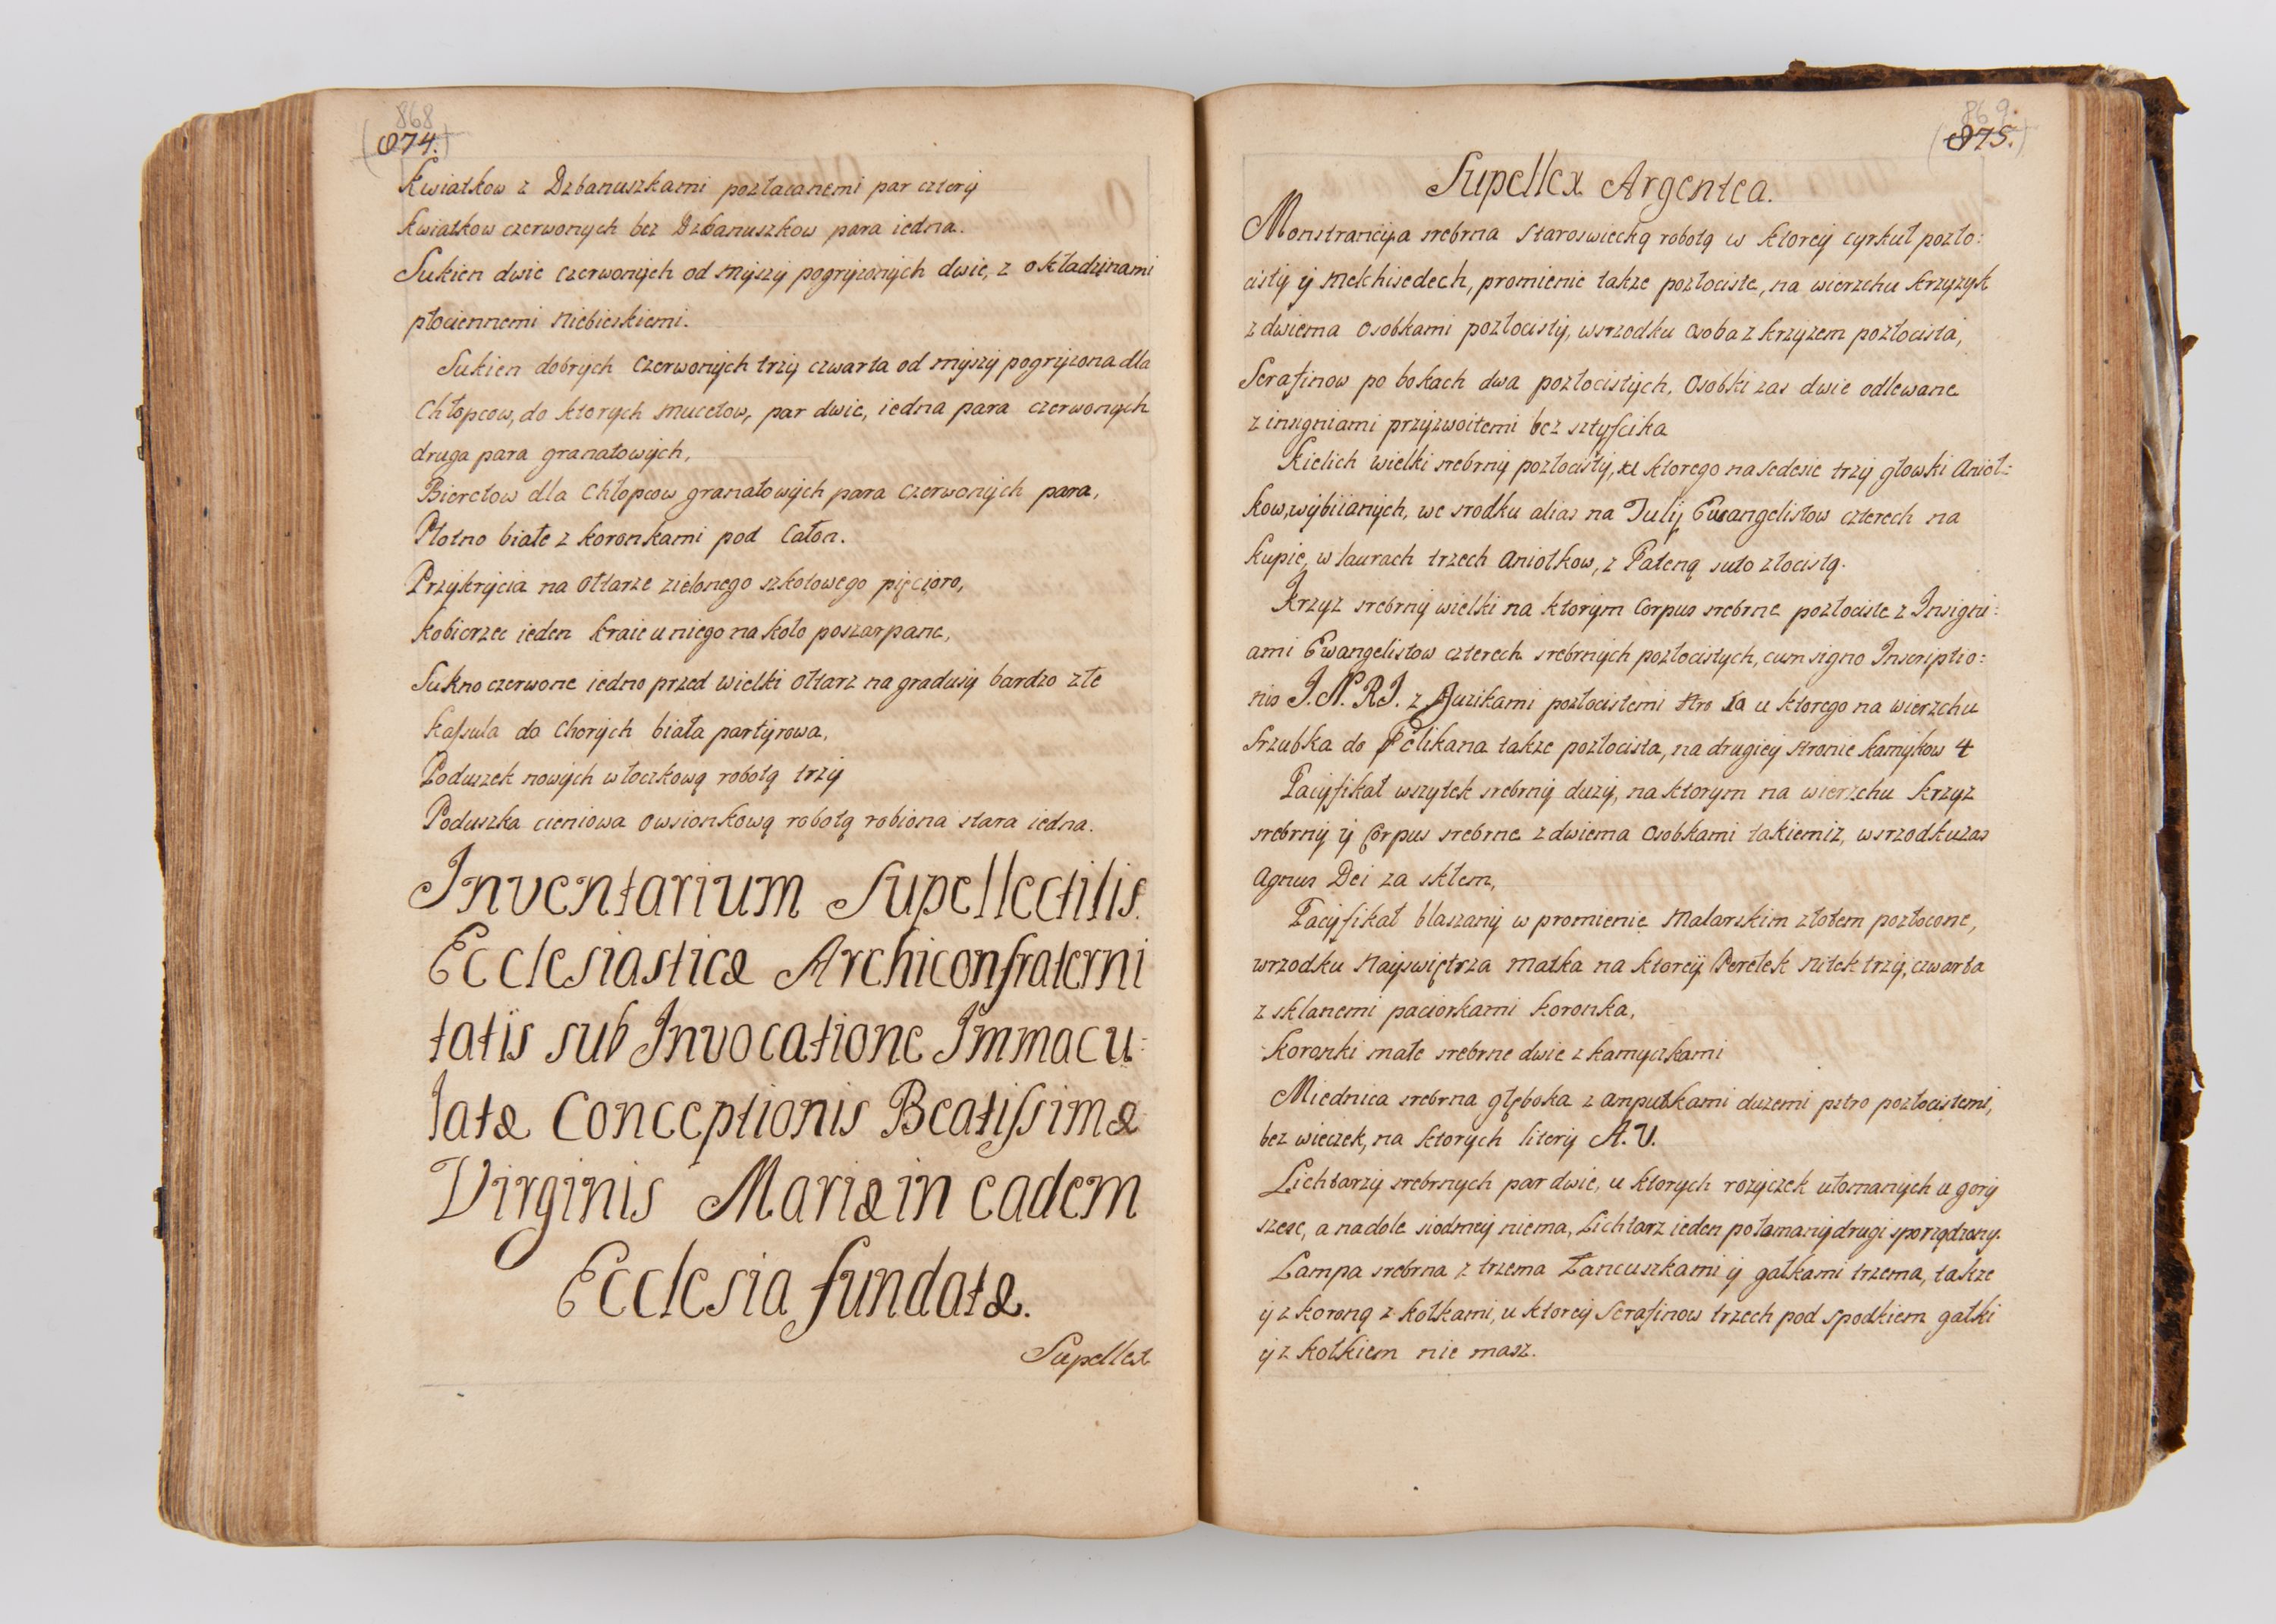 868
874.
Kwiatkow z Dzbanuszkami pozłacanemi par cztery
Kwiatkow czerwonych bez Dzbanuszkow para iedna.
Sukien dwie czerwonych od myszy pogryzonych dwie, z okładzinami
płociennemi Niebieskiemi.
Sukien dobrych czerwonych trzy czwarta od myszy pogryzona dla
Chłopcow, do ktorych mucetow, par dwie, iedna para czerwonych
druga para granatowych,
Bieretow dla Chłopcow granatowych para czerwonych para,
Płotno białe z koronkami pod Całon.
Przykrycia na Ołtarze zielonego szkotowego pięcioro,
Kobierzec ieden kraie u niego na koło poszarpane,
Sukno czerwone iedno przed wielki Ołtarz na gradusy bardzo złe
Kaſsula do Chorych biała partyrowa,
Poduszek nowych włoczkową robotą trzy
Poduszka cieniowa owsionkową robotą robiona stara iedna.
Inventarium Supellectilis
Ecclesiasticæ Archiconfraterni
tatis sub Invocatione Immacu:
latæ Conceptionis Beatiſsimæ
Virginis Mariæ in eadem
Ecclesia fundatæ.
Supellex
869.
875.
Supellex Argentea.
Monstrancyia srebrna Staroswiecką robotą w ktorey cyrkuł pozło:
cisty y Melchisedech, promienie takze pozłociste, na wierzchu krzyzyk
z dwiema Osobkami pozłocisty, wsrzodku Osoba z krzyzem pozłocista,
Serafinow po bokach dwa pozłocistych, Osobki zas dwie odlewane
z insigniami przyzwoitemi bez sztyfcika
Kielich wielki srebrny pozłocisty, u ktorego na Sedesie trzy głowki Anioł:
kow, wybiianych, we srodku alias na Tulij Ewangelistow czterech na
kupie, w laurach trzech Aniołkow, z Pateną suto złocistą.
Krzyz srebrny wielki na ktorym Corpus srebrne pozłociste z Insigni:
ami Ewangelistow czterech srebrnych pozłocistych, cum signo Inscriptio:
nis J. N. R J. z Guzikami pozłocistemi u ktorego na wierzchu
Srzubka do Pelikana takze pozłocista, na drugiey stronie kamykow 4
Pacyfikał wszytek srebrny duzy, na ktorym na wierzchu Krzyz
srebrny y Corpus srebrne z dwiema Osobkami takiemiz, wsrzodku zas
Agnus Dei za skłem,
Pacyfikał blaszany w promienie Malarskim złotem pozłocone,
wrzodku Nayswiętrza Matka na ktorey Perełek nitek trzy, czwarta
z sklanemi paciorkami koronka,
Koronki małe srebrne dwie z kamyczkami
Miednica srebrna głęboka z ampułkami duzemi pstro pozłocistemi,
bez wieczek, na ktorych litery A. V.
Lichtarzy srebrnych par dwie, u ktorych rozyczek ułomanych u gory
szesc, a nadole siodmey niema, Lichtarz ieden połamany drugi sporządzony.
Lampa srebrna z trzema Łancuszkami y gałkami trzema, takze
y z koroną z kołkami, u ktorey Serafinow trzech pod spodkiem gałki
y z kołkiem nie masz.